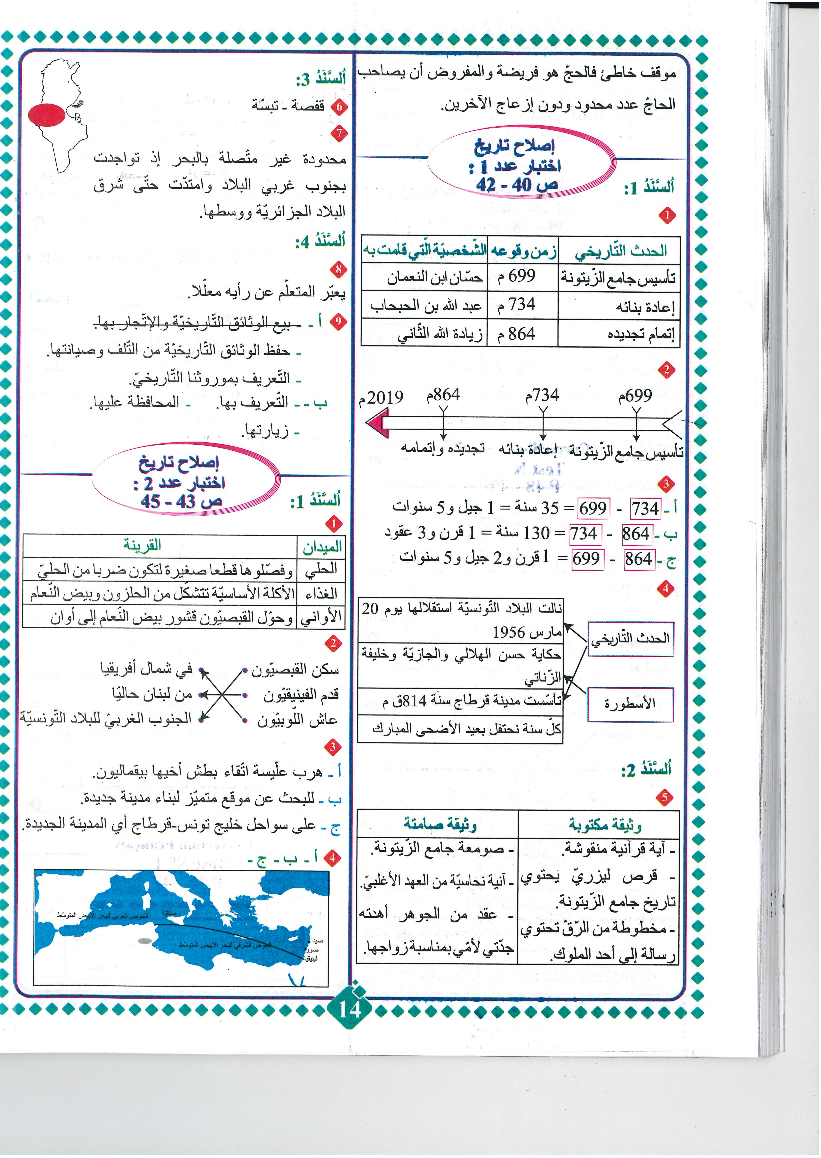 موقف خاطئ فالحجّ هو فريضة والمفروض أن يصاحب
الحاجّ عدد محدود ودون إزعاج الآخرين.
إصلاح تاريخ
اختبار عدد 1 :
ص 40 - 42
ألسَّنَدُ 1:
1
الحدث التّاريخي | زمن وقوعه | الشّخصيّة الّتي قامت به
تأسيس جامع الزّيتونة | 699 م | حسّان ابن النعمان
إعادة بنائه | 734 م | عبد الله بن الحبحاب
إتمام تجديده | 864 م | زيادة الله الثّاني
2
699م 734م 864م 2019م
تأسيس جامع الزّيتونة إعادة بنائه تجديده وإتمامه
3
أ - 734 - 699 = 35 سنة = 1 جيل و5 سنوات
ب - 864 - 734 = 130 سنة = 1 قرن و3 عقود
ج - 864 - 699 = 1قرن و2 جيل و5 سنوات
4
الحدث التّاريخي
الأسطورة
نالت البلاد التّونسيّة استقلالها يوم 20
مارس 1956
حكاية حسن الهلالي والجازيّة وخليفة
الزّناتي
تأسّست مدينة قرطاج سنة 814ق م
كلّ سنة نحتفل بعيد الأضحى المبارك
ألسَّنَدُ 2:
5
وثيقة مكتوبة | وثيقة صامتة
- آية قرآنية منقوشة. | - صومعة جامع الزّيتونة.
- قرص ليزريّ يحتوي | - آنية نحاسيّة من العهد الأغلبيّ.
تاريخ جامع الزّيتونة. | - عقد من الجوهر أهدته
- مخطوطة من الرّقّ تحتوي | جدّتي لأمّي بمناسبة زواجها.
رسالة إلى أحد الملوك.
ألسَّنَدُ 3:
6 قفصة - تبسّة
7
محدودة غير متّصلة بالبحر إذ تواجدت
بجنوب غربي البلاد وامتدّت حتّى شرق
البلاد الجزائريّة ووسطها.
ألسَّنَدُ 4:
8
يعبّر المتعلّم عن رأيه معلّلا.
9 أ - - بيع الوثائق التّاريخيّة والإتجار بها.
- حفظ الوثائق التّاريخيّة من التّلف وصيانتها.
- التّعريف بموروثنا التّاريخيّ.
ب - - التّعريف بها. - المحافظة عليها.
- زيارتها.
إصلاح تاريخ
اختبار عدد 2 :
ص 43 - 45
ألسَّنَدُ 1:
1
الميدان | القرينة
الحلي | وفصّلوها قطعا صغيرة لتكون ضربا من الحليّ
الغذاء | الأكلة الأساسيّة تتشكّل من الحلزون وبيض النّعام
الأواني | وحوّل القبصيّون قشور بيض النّعام إلى أوان
2
سكن القبصيّون في شمال أفريقيا
قدم الفينيقيّون من لبنان حاليّا
عاش اللّوبيّون الجنوب الغربيّ للبلاد التّونسيّة
3
أ - هرب علّيسة اتّقاء بطش أخيها بيقماليون.
ب - للبحث عن موقع متميّز لبناء مدينة جديدة.
ج - على سواحل خليج تونس-قرطاج أي المدينة الجديدة.
4 أ - ب - ج -
الحوض الغربي للبحر الأبيض المتوسّط
الحوض الشرقي للبحر الأبيض المتوسّط
14